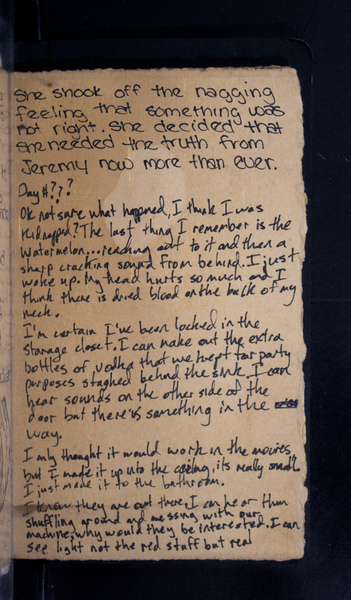 She shook off the nagging
feeling that something was
not right. She decided that
she needed the truth from
Jeremy now more than ever.
Day #???
Ok not sure what happned, I think I was
kidnapped? The last thing I remember is the
watermelon...reaching out to it and then a
sharp cracking sound from behind. I just
woke up. My head hurts so much and I
think there is dried blood on the back of my
neck.
I'm certain I've been locked in the
storage closet. I can make out the extra
bottles of vodka that we kept for party
purposes stashed behind the sink. I can
hear sounds on the other side of the
door but there is something in the
way.
I only thought it would work in the movies
but I made it up into the ceiling, its really small
I just made it to the bathroom.
I know they are out there, I can hear them
shuffling around and messing with our
machine, why would they be interested. I can
see light not the red stuff but real